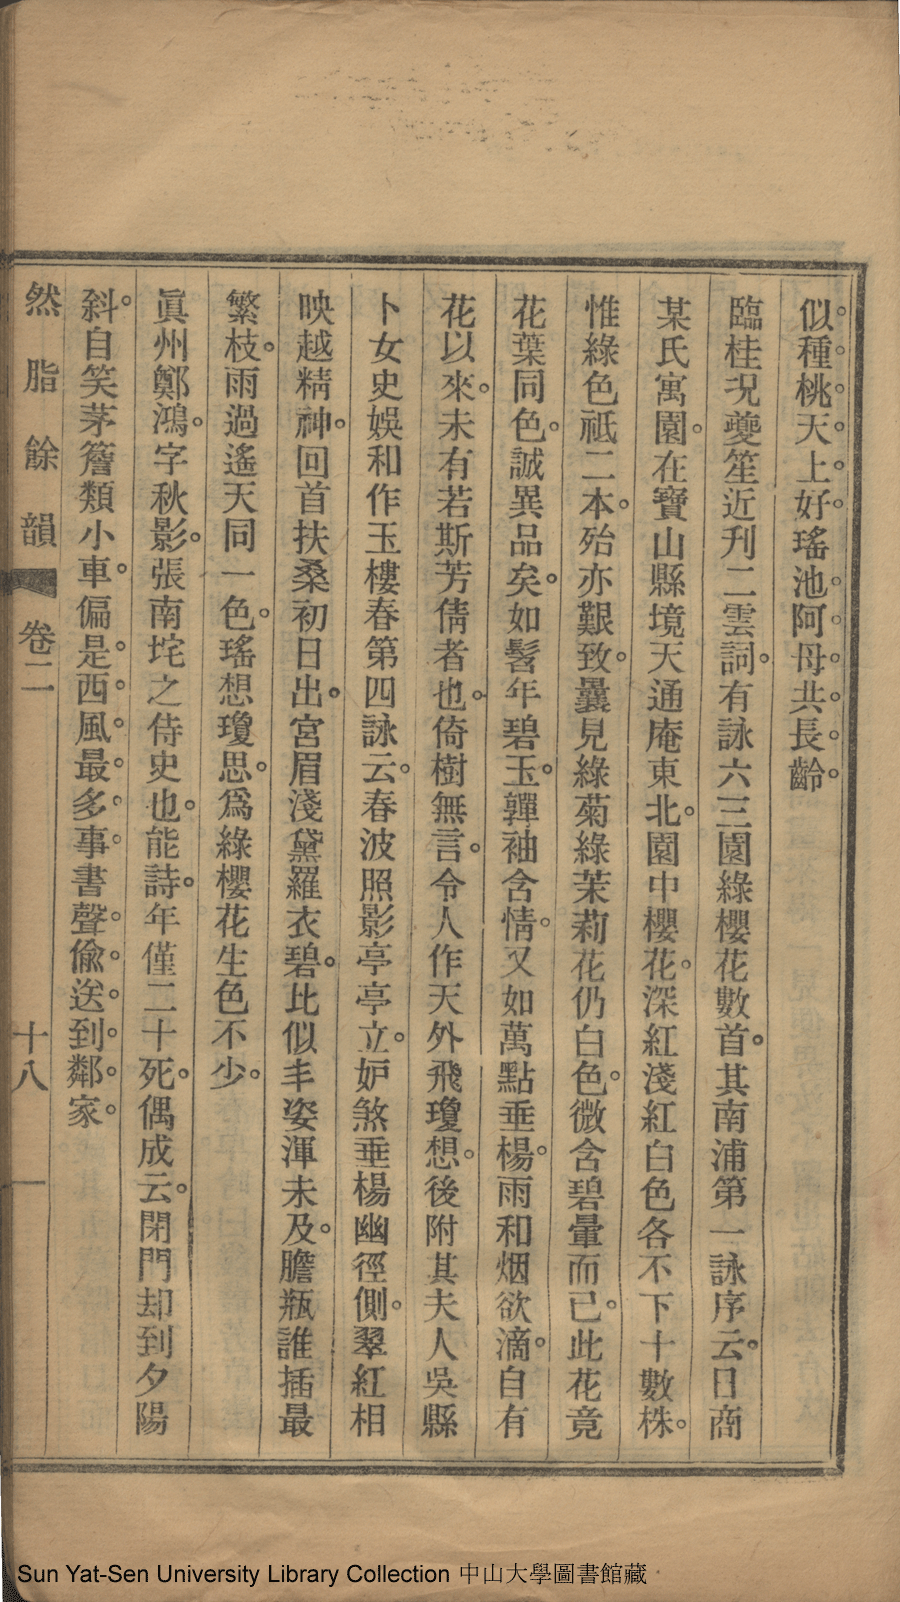 似種桃天上好瑤池阿母共長齡
臨桂況夔笙近刋二雲詞有詠六三園綠櫻花數首其南浦第一詠序云日商
某氏寓園在寶山縣境天通庵東北園中櫻花深紅淺紅白色各不下十數株
惟綠色祗二本殆亦艱致曩見綠菊綠茉莉花仍白色微含碧暈而已此花竟
花葉同色誠異品矣如髫年碧玉嚲袖含情又如萬點垂楊雨和烟欲滴自有
花以來未有若斯芳倩者也倚樹無言令人作天外飛瓊想後附其夫人吳縣
卜女史娛和作玉樓春第四詠云春波照影亭亭立妒煞垂楊幽徑側翠紅相
映越精神回首扶桑初日出宮眉淺黛羅衣碧比似丰姿渾未及膽瓶誰插最
繁枝雨過遙天同一色瑤想瓊思爲綠櫻花生色不少
眞州鄭鴻字秋影張南垞之侍史也能詩年僅二十死偶成云閉門却到夕陽
斜自笑茅簷類小車偏是西風最多事書聲偸送到鄰家
然脂餘韻 卷二 十八
Sun Yat-Sen University Library Collection 中山大學圖書館藏